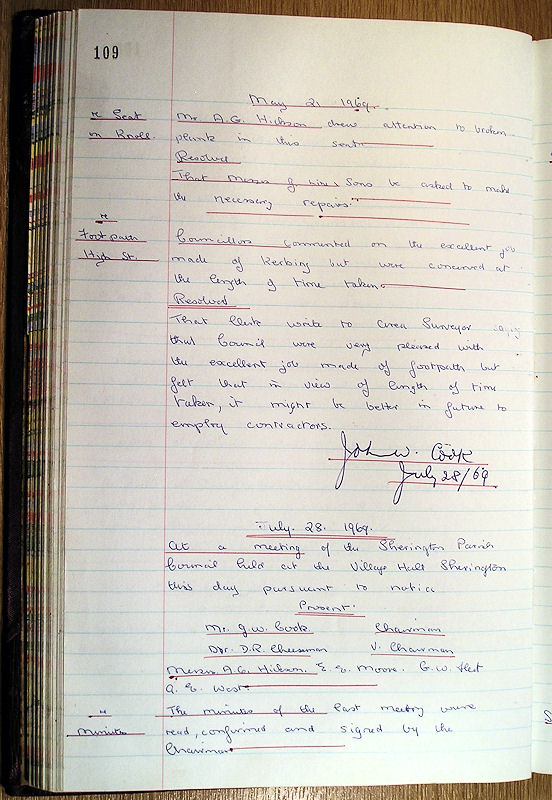 109
May 21 1969.
re Seat
on Knoll.
Mr A.G. Hickson drew attention to broken
plank in this seat.
Resolved
That Messrs J King & Sons be asked to make
the necessary repairs.
re
Footpath
High St.
Councillors commented on the excellent job
made of kerbing but were concerned at
the length of time taken.
Resolved
That Clerk write to Area Surveyor saying
that Council were very pleased with
the excellent job made of footpath but
felt that in view of length of time
taken, it might be better in future to
employ contractors.
John W. Cook
July 28/69
July. 28. 1969.
At a meeting of the Sherington Parish
Council held at the Village Hall Sherington
this day pursuant to notice
Present.
Mr. J.W. Cook. Chairman
D.R. Cheesman V. Chairman
Messrs A.G. Hickson. E. E. Moore. G.W.
A. E. West
re
Minutes
The minutes of the last meeting were
read, confirmed and signed by the
Chairman